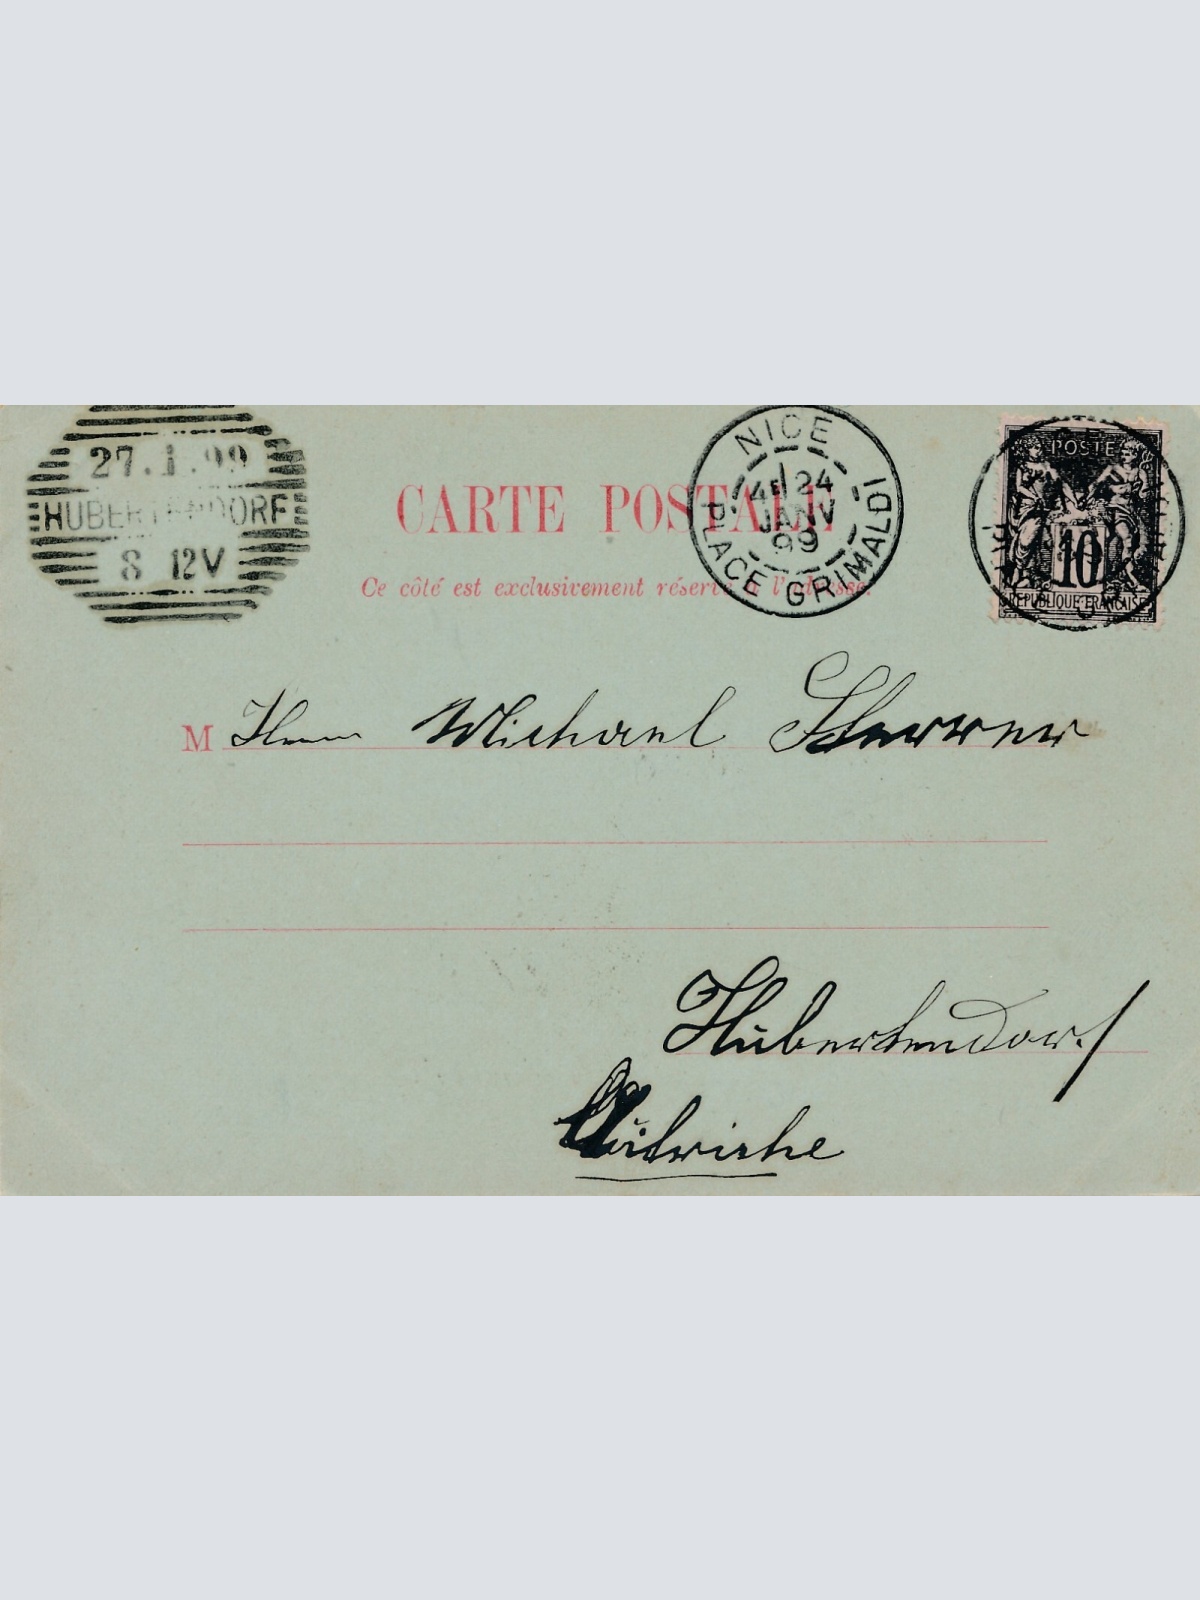 27.1.99
HUBERTENDORF
8 12V
NICE
4E 24
JANV
99
PLACE GRIMALDI
POSTE
10
REPUBLIQUE FRANCAISE
CARTE POSTALE
Ce côté est exclusivement réservé à l'adresse.
M Herrn Michael Scherrer
Hubertendorf